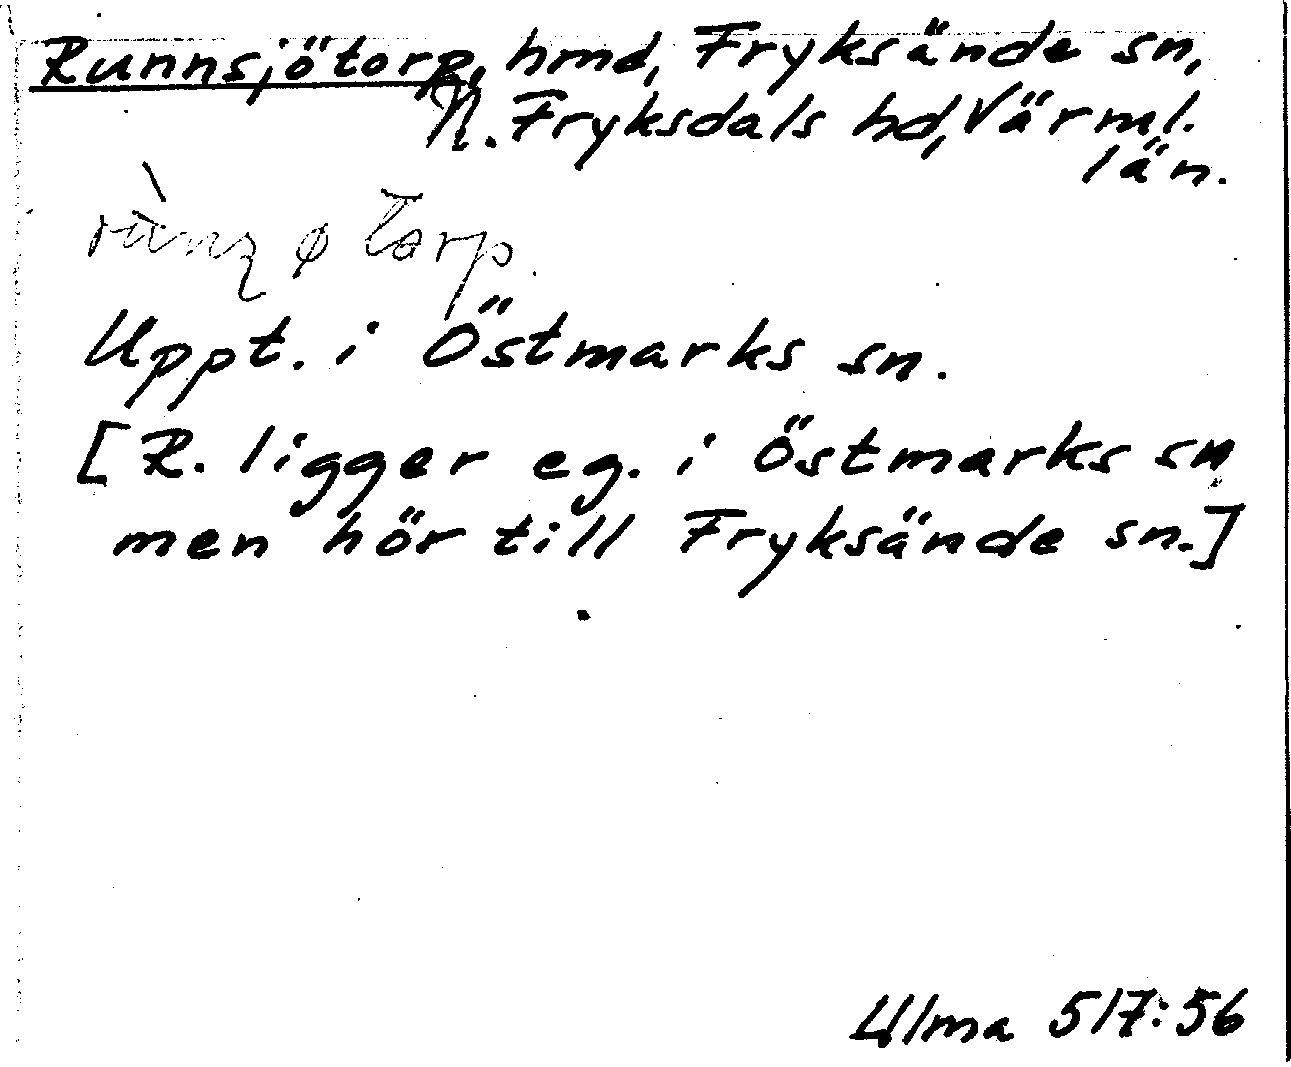 Runnsjötorp, hmd, Fryksände sn,
N. Fryksdals hd, Värml.
län.
Uppt. i Östmarks sn.
[R. ligger eg. i Östmarks sn
men hör till Fryksände sn.]
Ulma 517:56